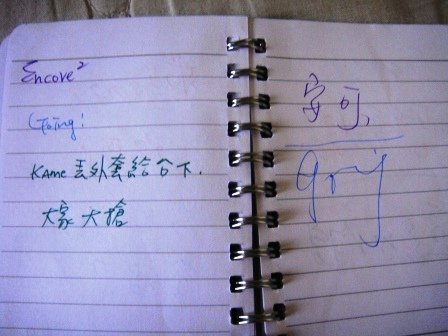 Encore²
Going!
KAME 丟外套給台下.
大家大搶
安可,